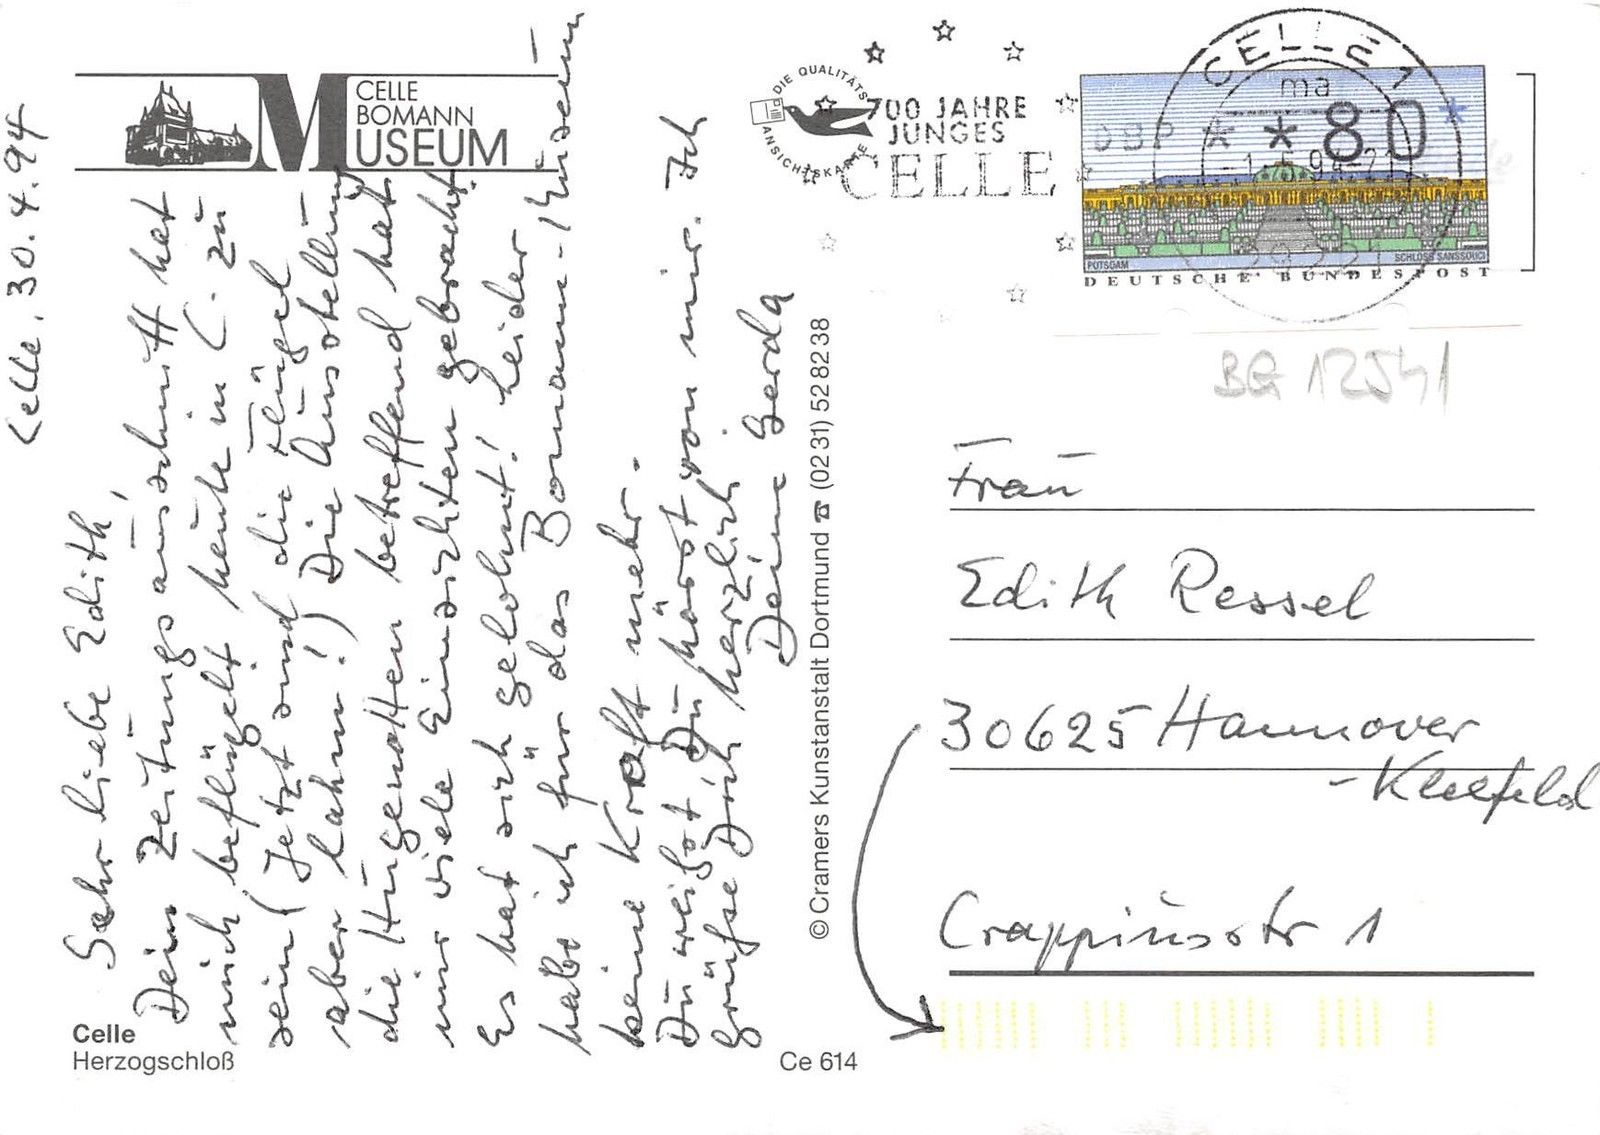 Celle, 30.4.94
CELLE
BOMANN
MUSEUM
Sehr liebe Edith,
Dein Zeitungsausschnitt hat
mich beflügelt heute in C. zu
sein (Jetzt sind die Flügel
aber lahm!) Die Ausstellung
die Hugenotten betreffend hat
mir viele Einsichten gebracht.
Es hat sich gelohnt! Leider
habe ich für das Bomann-Museum
keine Kraft mehr.
Du weißt, Du hörst von mir. Ich
grüße Dich herzlich
Deine Gerda
Celle
Herzogschloß
Ce 614
© Cramers Kunstanstalt Dortmund ☎ (02 31) 52 82 38
DIE QUALITÄTS
ANSICHTSKARTE
700 JAHRE
JUNGES
CELLE
CELLE 1
ma
DBP * * 80 *
POTSDAM
SCHLOSS SANSSOUCI
DEUTSCHE BUNDESPOST
BG 12541
Frau
Edith Ressel
30625 Hannover
-Kleefeld
Crappiusstr 1